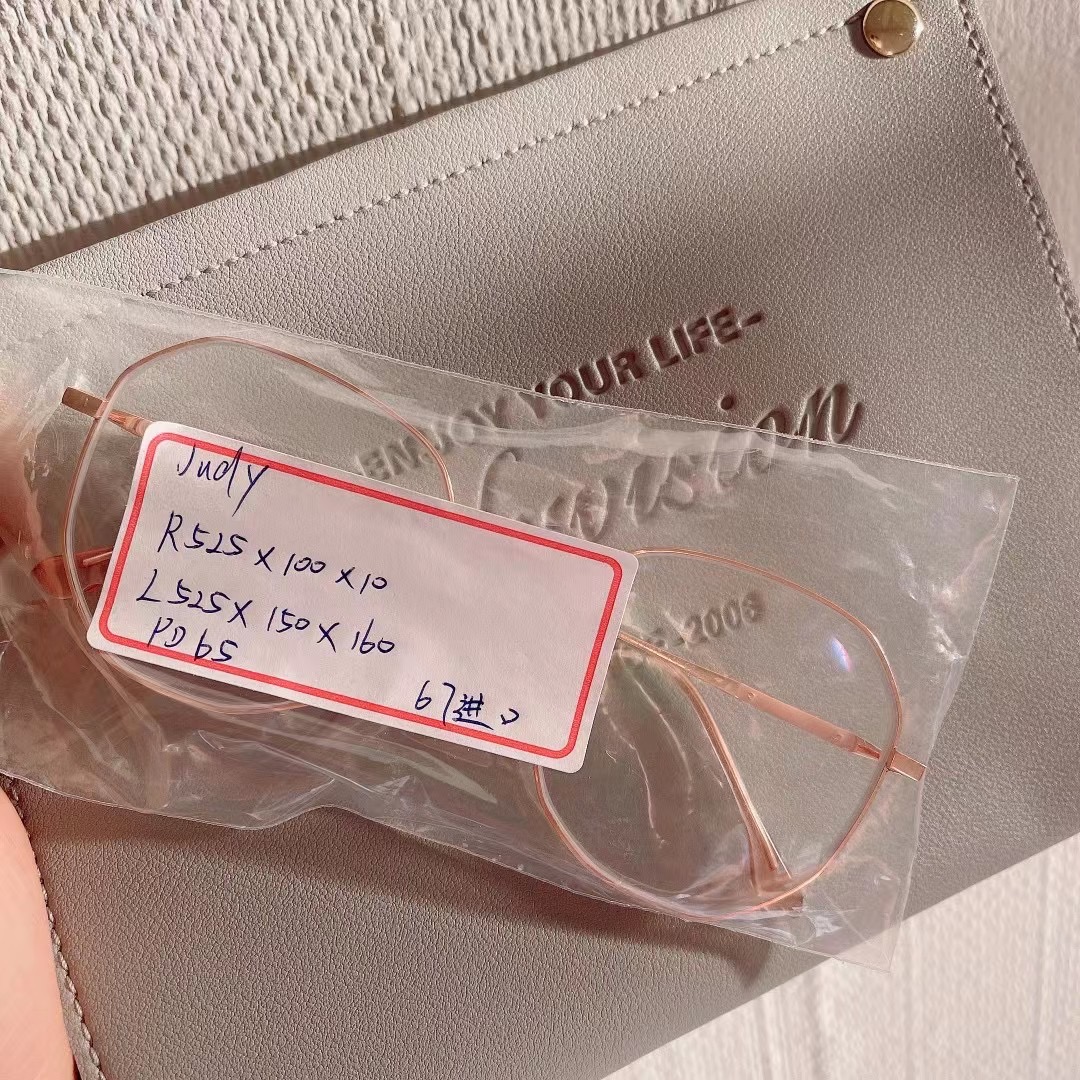 ENJOY YOUR LIFE-
2008
Judy
R 525 × 100 × 10
L 525 × 150 × 160
PD 65
67进口